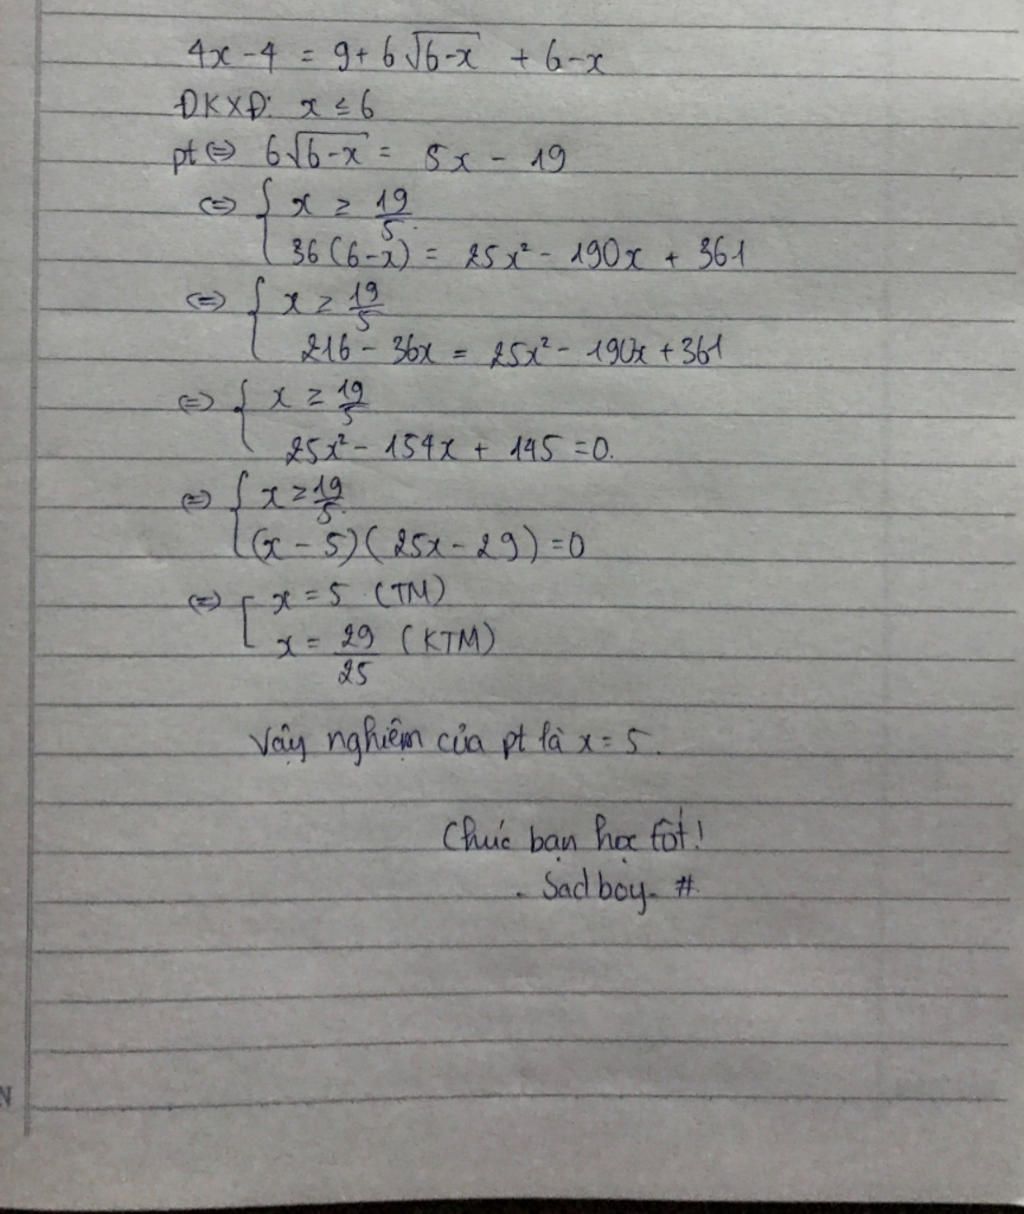 4x - 4 = 9 + 6√(6-x) + 6-x
ĐKXĐ: x ≤ 6
pt ⇔ 6√(6-x) = 5x - 19
⇔ { x ≥ 19/5
36(6-x) = 25x² - 190x + 361
⇔ { x ≥ 19/5
216 - 36x = 25x² - 190x + 361
⇔ { x ≥ 19/5
25x² - 154x + 145 = 0.
⇔ { x ≥ 19/5
(x - 5)(25x - 29) = 0
⇔ [ x = 5 (TM)
x = 29/25 (KTM)
Vậy nghiệm của pt là x = 5.
Chúc bạn học tốt!
. Sad boy. #
N